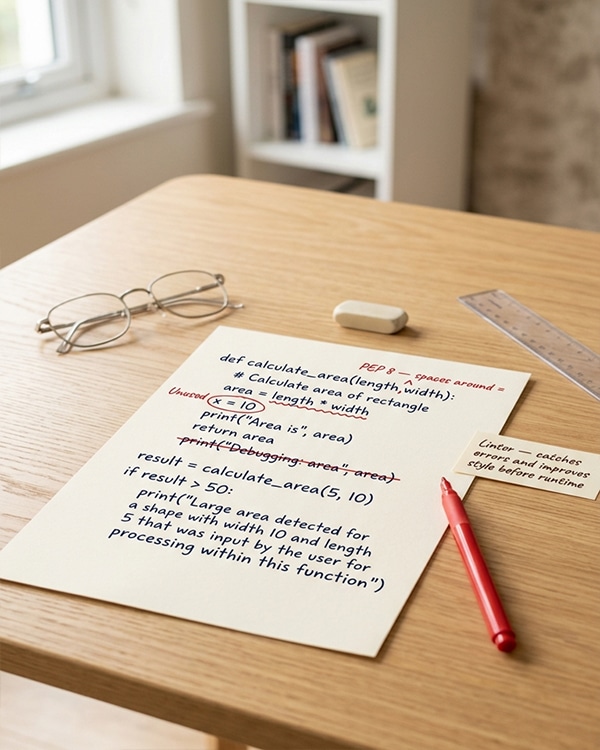 def calculate_area(length, width):
PEP 8 — spaces around =
# Calculate area of rectangle
area = length * width
Unused
x = 10
print("Area is", area)
return area
print("Debugging: area", area)
result = calculate_area(5, 10)
if result > 50:
print("Large area detected for
a shape with width 10 and length
5 that was input by the user for
processing within this function")
Linter — catches
errors and improves
style before runtime